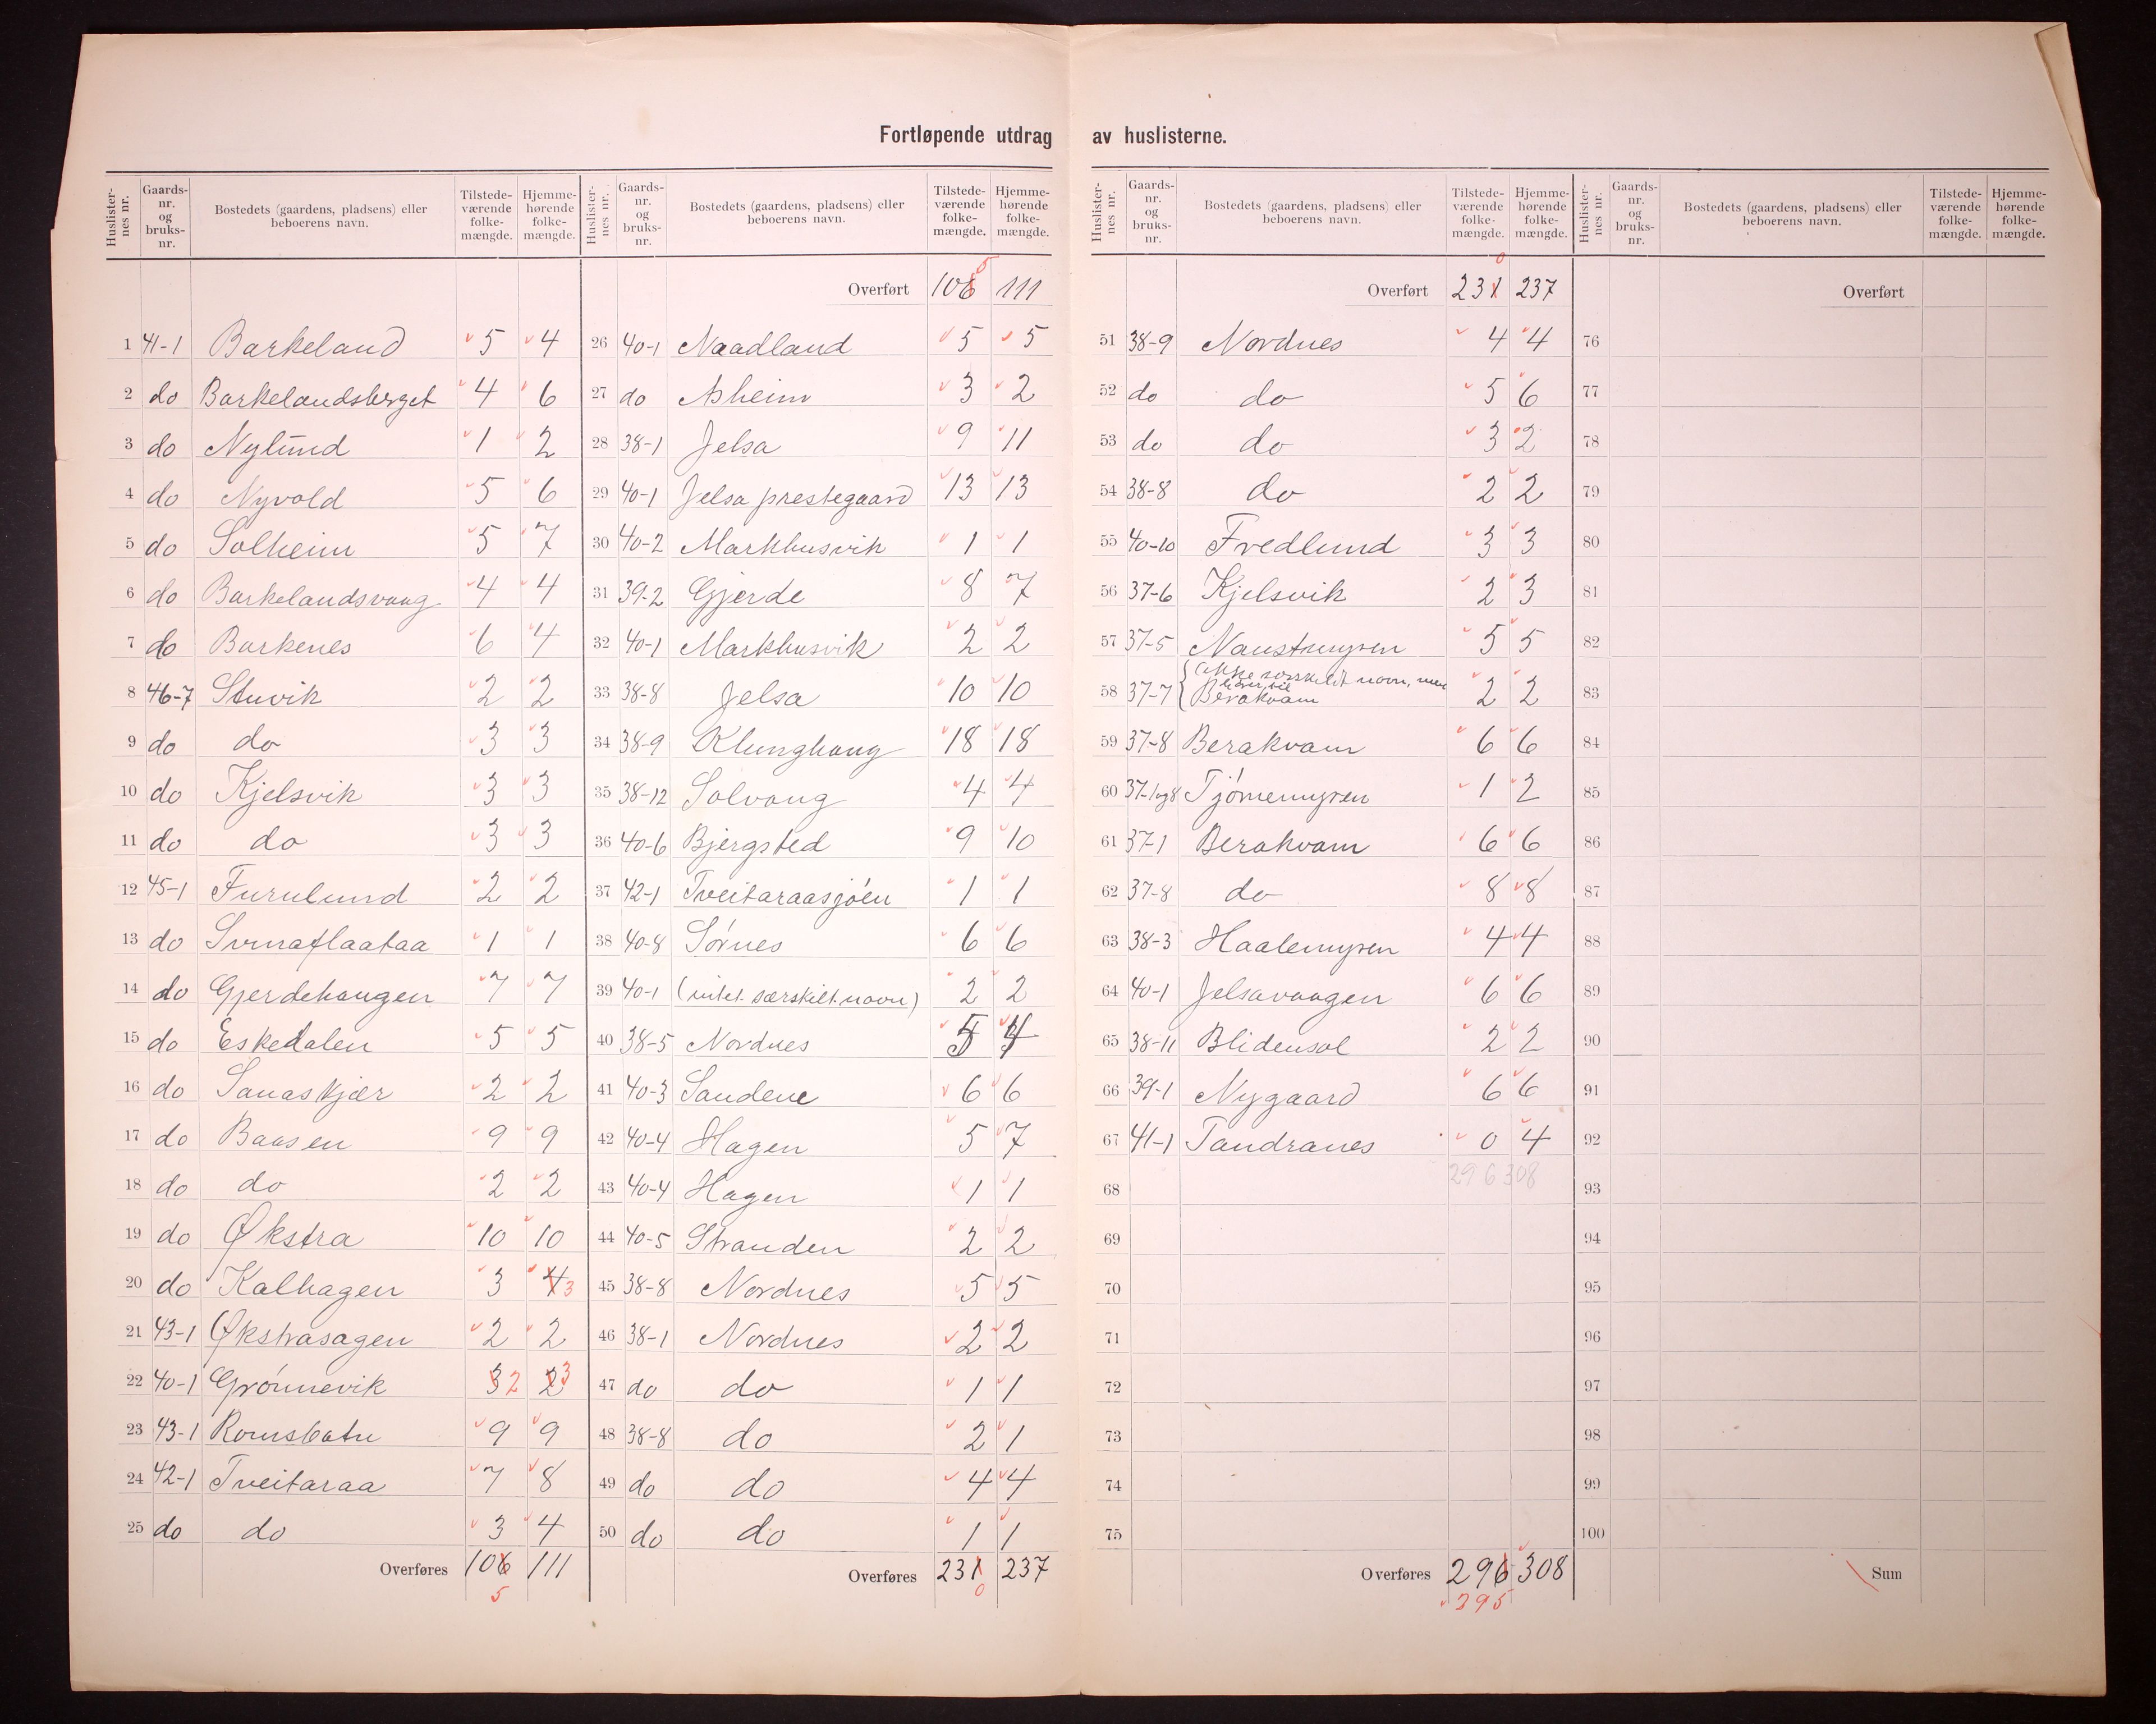 Fortløpende utdrag av huslisterne.
Huslister-nes nr. Gaards-nr. og bruks-nr. Bostedets (gaardens, pladsens) eller beboerens navn. Tilstede-værende folke-mængde. Hjemme-hørende folke-mængde.
1 41-1 Barkeland 5 4
2 do Barkelandsberget 4 6
3 do Nylund 1 2
4 do Nyvold 5 6
5 do Solheim 5 7
6 do Barkelandsvaag 4 4
7 do Barkenes 6 4
8 46-7 Stuvik 2 2
9 do do 3 3
10 do Kjelsvik 3 3
11 do do 3 3
12 45-1 Furulund 2 2
13 do Svinaflaataa 1 1
14 do Gjerdehaugen 7 7
15 do Eskedalen 5 5
16 do Sanaskjær 2 2
17 do Baasen 9 9
18 do do 2 2
19 do Økstra 10 10
20 do Kalhagen 3 4 3
21 43-1 Økstrasagen 2 2
22 40-1 Grönnevik 3 2 2 3
23 43-1 Romsbotn 9 9
24 42-1 Tveitaraa 7 8
25 do do 3 4
Overføres 106 111
5
Huslister-nes nr. Gaards-nr. og bruks-nr. Bostedets (gaardens, pladsens) eller beboerens navn. Tilstede-værende folke-mængde. Hjemme-hørende folke-mængde.
5
Overført 106 111
26 40-1 Naadland 5 5
27 do Asheim 3 2
28 38-1 Jelsa 9 11
29 40-1 Jelsa prestegaard 13 13
30 40-2 Markhusvik 1 1
31 39-2 Gjerde 8 7
32 40-1 Markhusvik 2 2
33 38-8 Jelsa 10 10
34 38-9 Klunghaug 18 18
35 38-12 Solvang 4 4
36 40-6 Bjergsted 9 10
37 42-1 Tveitaraasjöen 1 1
38 40-8 Sörnes 6 6
39 40-1 (intet særskilt navn) 2 2
40 38-5 Nordnes 5 4
41 40-3 Sandene 6 6
42 40-4 Hagen 5 7
43 40-4 Hagen 1 1
44 40-5 Stranden 2 2
45 38-8 Nordnes 5 5
46 38-1 Nordnes 2 2
47 do do 1 1
48 38-8 do 2 1
49 do do 4 4
50 do do 1 1
Overføres 231 237
0
Huslister-nes nr. Gaards-nr. og bruks-nr. Bostedets (gaardens, pladsens) eller beboerens navn. Tilstede-værende folke-mængde. Hjemme-hørende folke-mængde.
0
Overført 231 237
51 38-9 Nordnes 4 4
52 do do 5 6
53 do do 3 2
54 38-8 do 2 2
55 40-10 Fredlund 3 3
56 37-6 Kjelsvik 2 3
57 37-5 Naustmyren 5 5
58 37-7 { ikke særskilt navn, men hører til Berakvam 2 2
59 37-8 Berakvam 6 6
60 37-1og8 Tjörnemyren 1 2
61 37-1 Berakvam 6 6
62 37-8 do 8 8
63 38-3 Haalemyren 4 4
64 40-1 Jelsavaagen 6 6
65 38-11 Blidensol 2 2
66 39-1 Nygaard 6 6
67 41-1 Tandranes 0 4
68 296 308
69
70
71
72
73
74
75
Overføres 296 308
295
Huslister-nes nr. Gaards-nr. og bruks-nr. Bostedets (gaardens, pladsens) eller beboerens navn. Tilstede-værende folke-mængde. Hjemme-hørende folke-mængde.
Overført
76
77
78
79
80
81
82
83
84
85
86
87
88
89
90
91
92
93
94
95
96
97
98
99
100
Sum